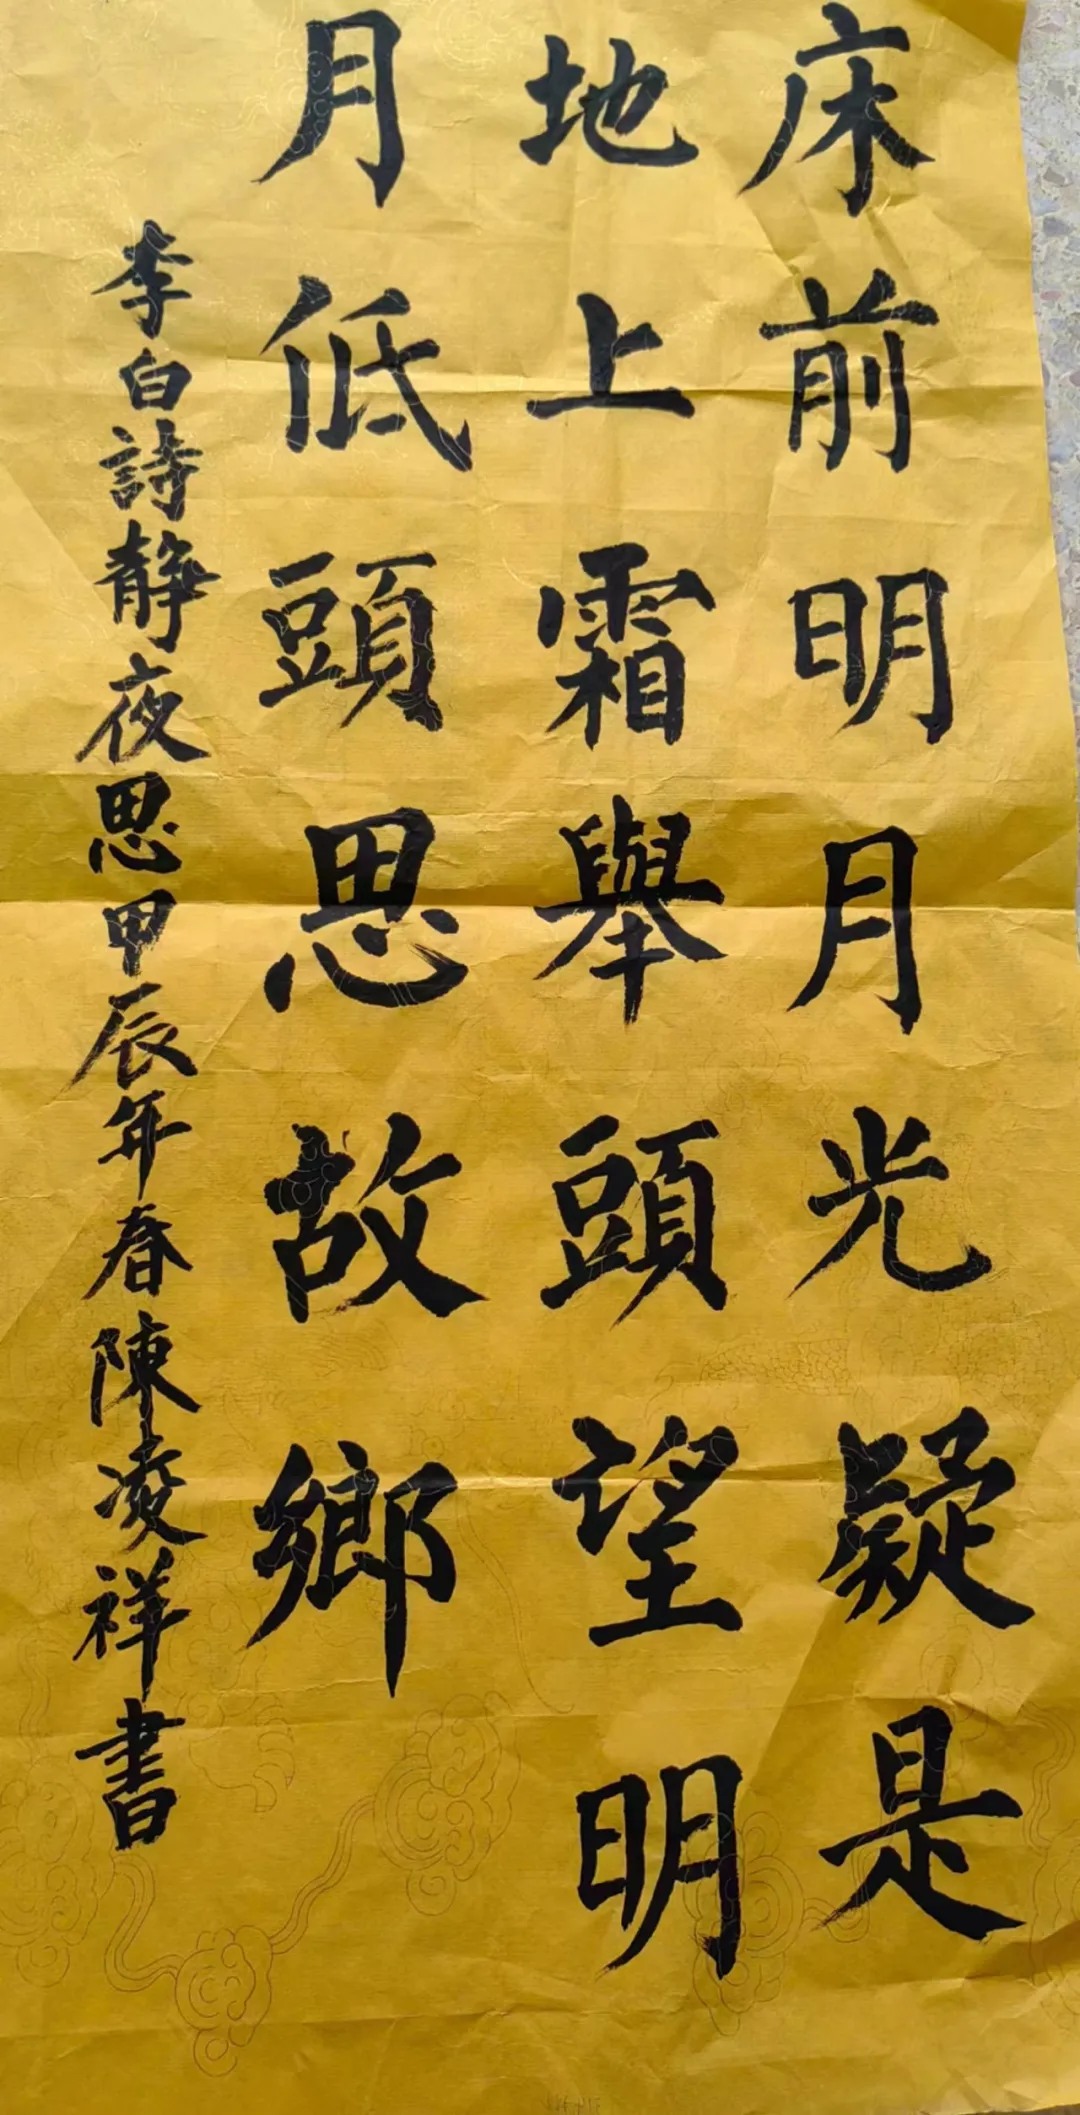 床前明月光疑是
地上霜舉頭望明
月低頭思故鄉
李白詩靜夜思甲辰年春陳凌祥書